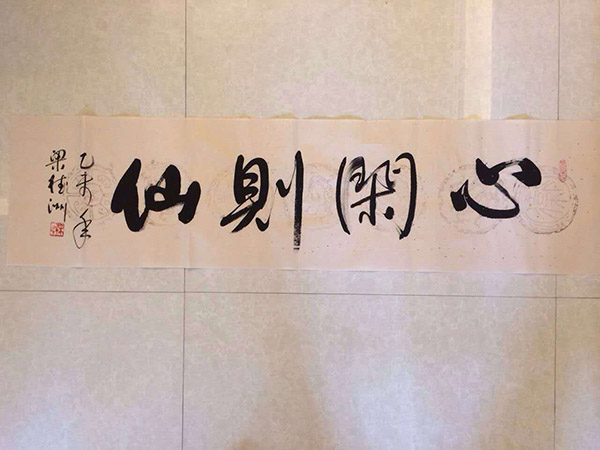 心閑則仙
乙未年
梁桂洲